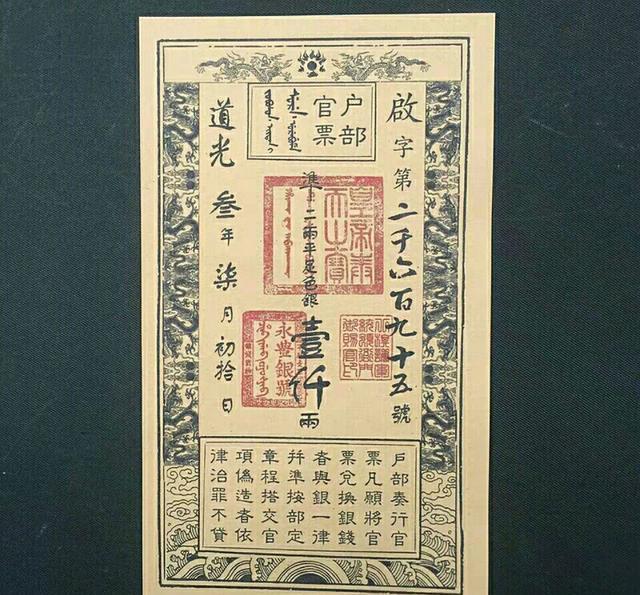 户部
官票
啟字第二千六百九十五號
皇帝奉
天之寶
準二兩平足色銀壹仟兩
永豐銀號
道光叁年柒月初拾日
户部奏行官
票凡願將官
票兌換銀錢
者與銀一律
幷準按部定
章程搭交官
項偽造者依
律治罪不貸